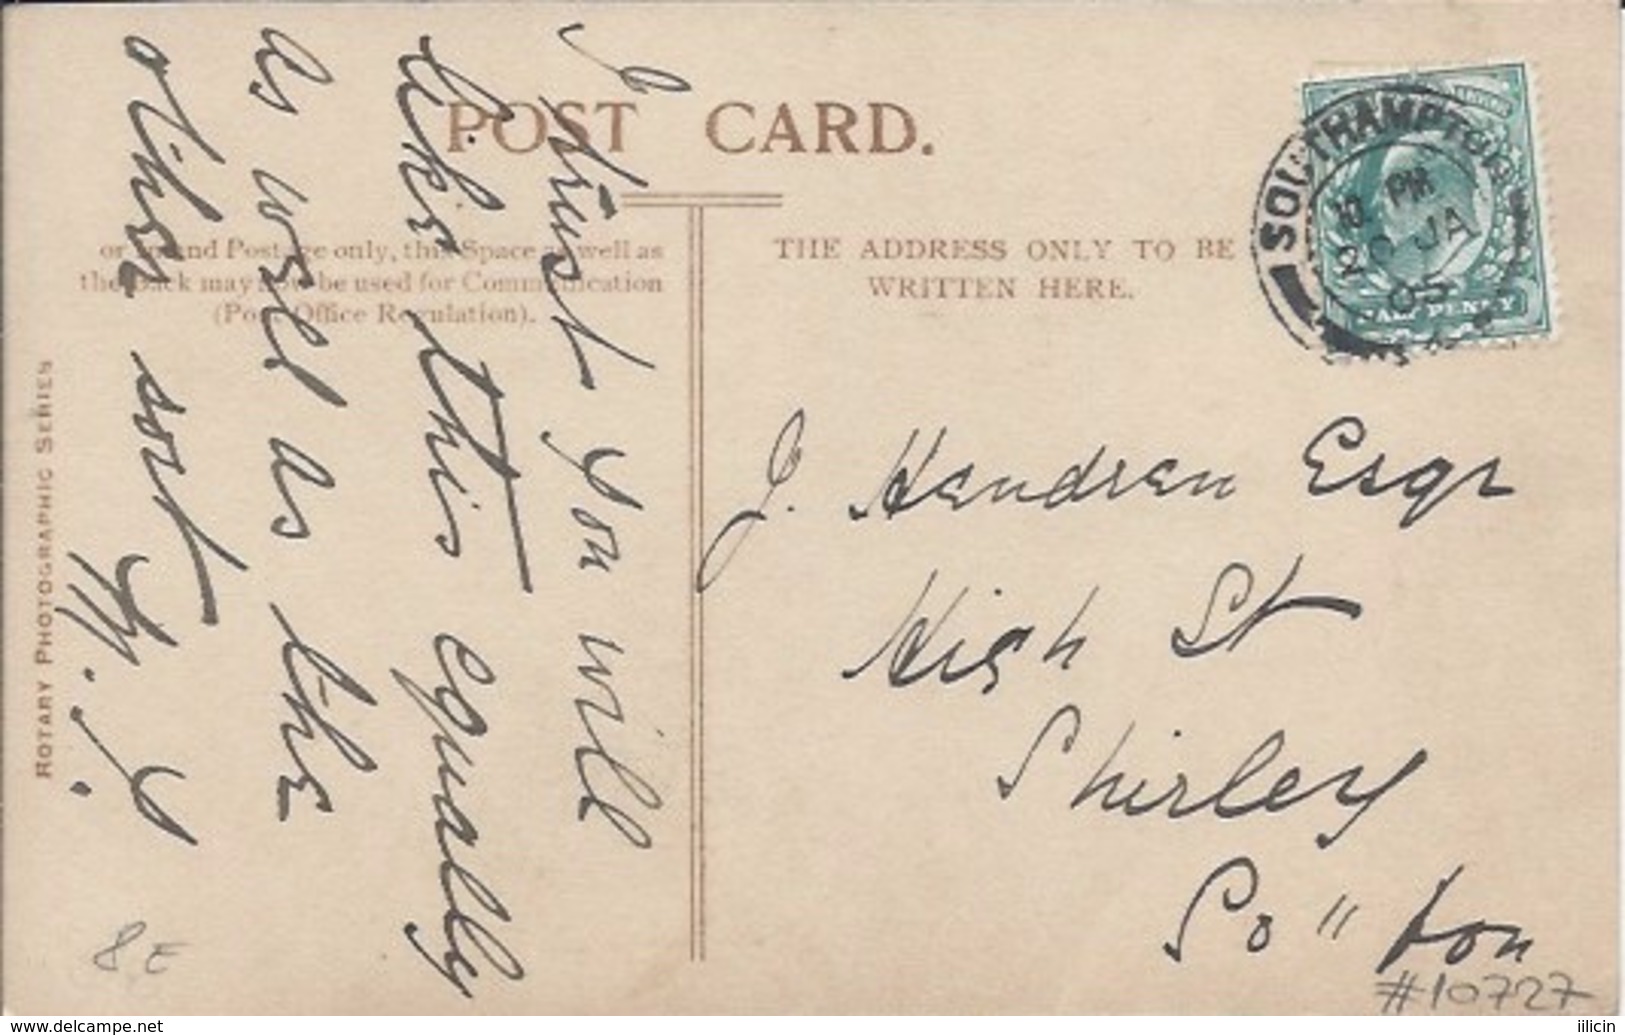 POST CARD.
For Inland Postage only, this Space as well as
the Back may now be used for Communication
(Post Office Regulation).
THE ADDRESS ONLY TO BE
WRITTEN HERE.
ROTARY PHOTOGRAPHIC SERIES
I trust you will
like this equally
as well as the
other sort
SOUTHAMPTON
PM
JA
05
HALF PENNY
J. Hendren Esqr
High St
Shirley
So " ton
8 E
#10727
www.delcampe.net
illicin